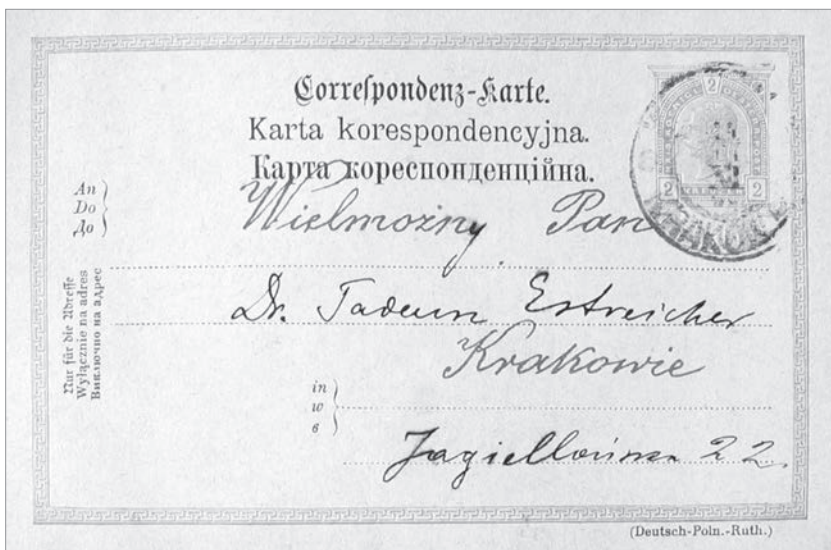 Correſpondenz-Karte.
Karta korespondencyjna.
Карта кореспонденційна.
2
2 2
KRAKÓW
An
Do
До
Wielmożny Pan
Nur für die Adreſſe
Wyłącznie na adres
Виключно на адрес
Dr. Tadeusz Estreicher
Krakowie
in
w
в
Jagiellońska 22.
(Deutsch-Poln.-Ruth.)